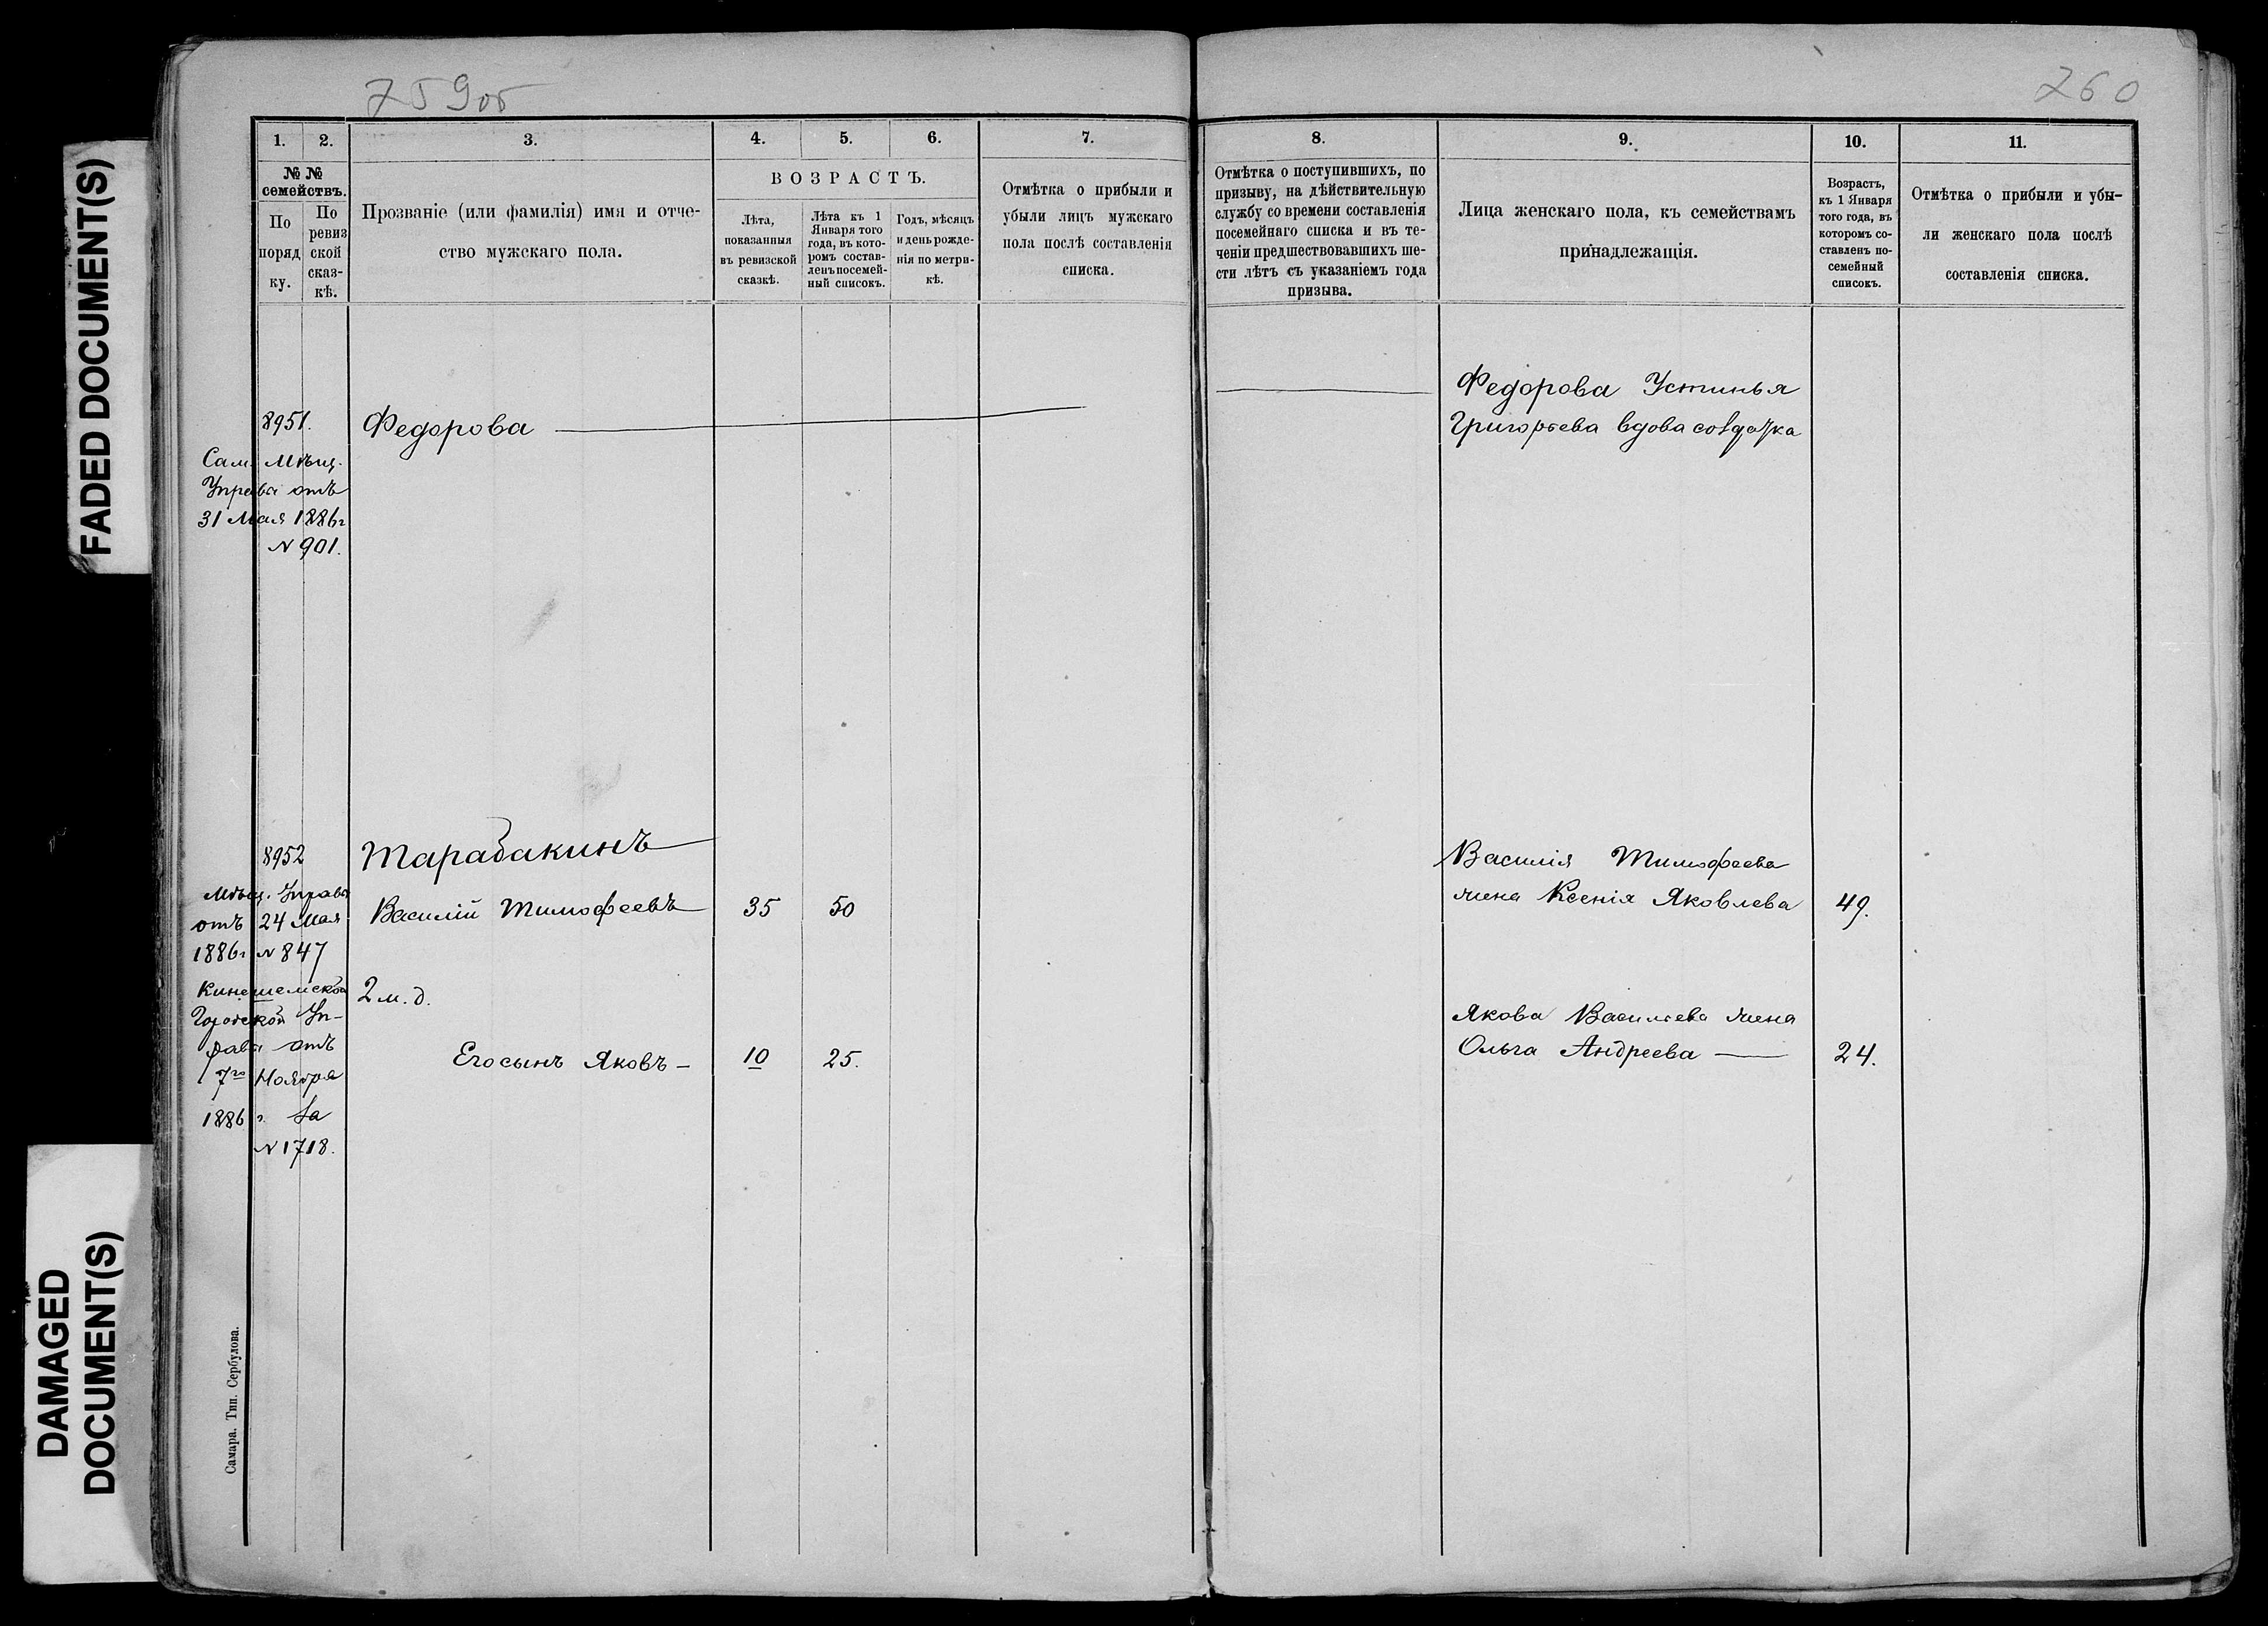 FADED DOCUMENT(S)
DAMAGED
DOCUMENT(S)
759об
1. 2. 3. 4. 5. 6. 7.
№ №
семействъ.
По
поряд
ку.
По
ревиз
ской
сказ-
кѣ.
Прозваніе (или фамилія) имя и отче-
ство мужскаго пола.
ВОЗРАСТЪ.
Лѣта,
показанныя
въ ревизской
сказкѣ.
Лѣта къ 1
Января того
года, въ кото-
ромъ состав-
ленъ посемей-
ный списокъ.
Годъ, мѣсяцъ
и день рожде-
нія по метри-
кѣ.
Отмѣтка о прибыли и
убыли лицъ мужскаго
пола послѣ составленія
списка.
8951. Федорова
Сам. Мѣщ.
Управа отъ
31 Мая 1886г
N 901.
8952 Тарабакинъ
Мѣщ. Управа
отъ 24 Мая
1886г N 847
Василій Тимофеевъ 35 50
Кинешемской
Городской Уп-
равы отъ
7го Ноября
1886 г. за
N 1718.
2 м. д.
Его сынъ Яковъ 10 25.
Самара. Тип. Сербулова.
260
8. 9. 10. 11.
Отмѣтка о поступившихъ, по
призыву, на дѣйствительную
службу со времени составленія
посемейнаго списка и въ те-
ченіи предшествовавшихъ ше-
сти лѣтъ съ указаніемъ года
призыва.
Лица женскаго пола, къ семействамъ
принадлежащія.
Возрастъ,
къ 1 Января
того года, въ
которомъ со-
ставленъ по-
семейный
списокъ.
Отмѣтка о прибыли и убы-
ли женскаго пола послѣ
составленія списка.
Федорова Устинья
Григорьева вдова солдатка
Василія Тимофеева
жена Ксенія Яковлева 49.
Якова Васильева жена
Ольга Андреева 24.